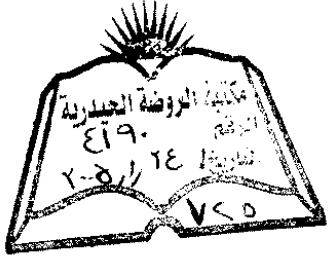 مكتبة الروضة الحيدرية
الرقم ٤٢٩٠
التاريخ ٢٤
٧٢٥